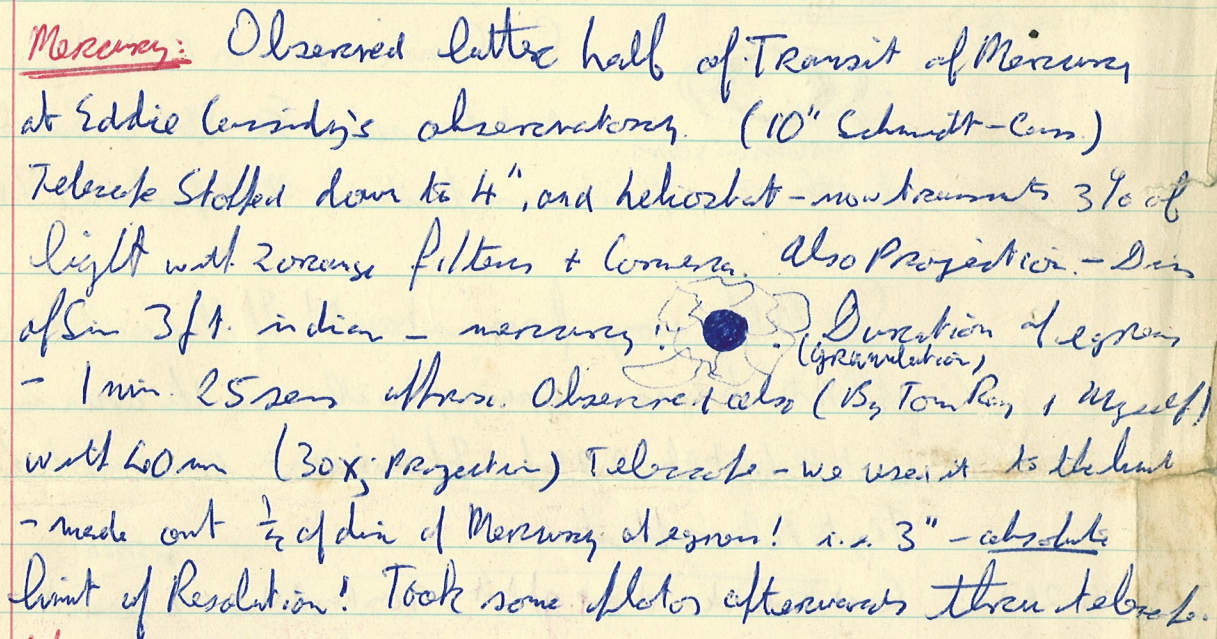 Mercury: Observed latter half of Transit of Mercury
at Eddie Cassidy's observatory. (10" Schmidt-Cass.)
Telescope Stopped down to 4", and heliostat - now transmits 3% of
light with 2 orange filters + Camera. Also Projection. - Dia
of Sun 3ft. in diam - mercury Duration of egress
(granulation)
- 1 min. 25 secs approx. Observed also (By Tom Ray & Myself!)
with 40mm (30x; Projection) Telescope - we used it to the limit
- made out of disc of Mercury at egress! i.e. 3" - absolute
limit of Resolution! Took some photos afterwards thru telescope.